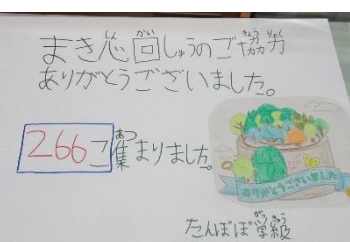 まき芯回しゅうのご協力
ありがとうございました。
266こ集まりました。
ありがとうございました
たんぽぽ学級